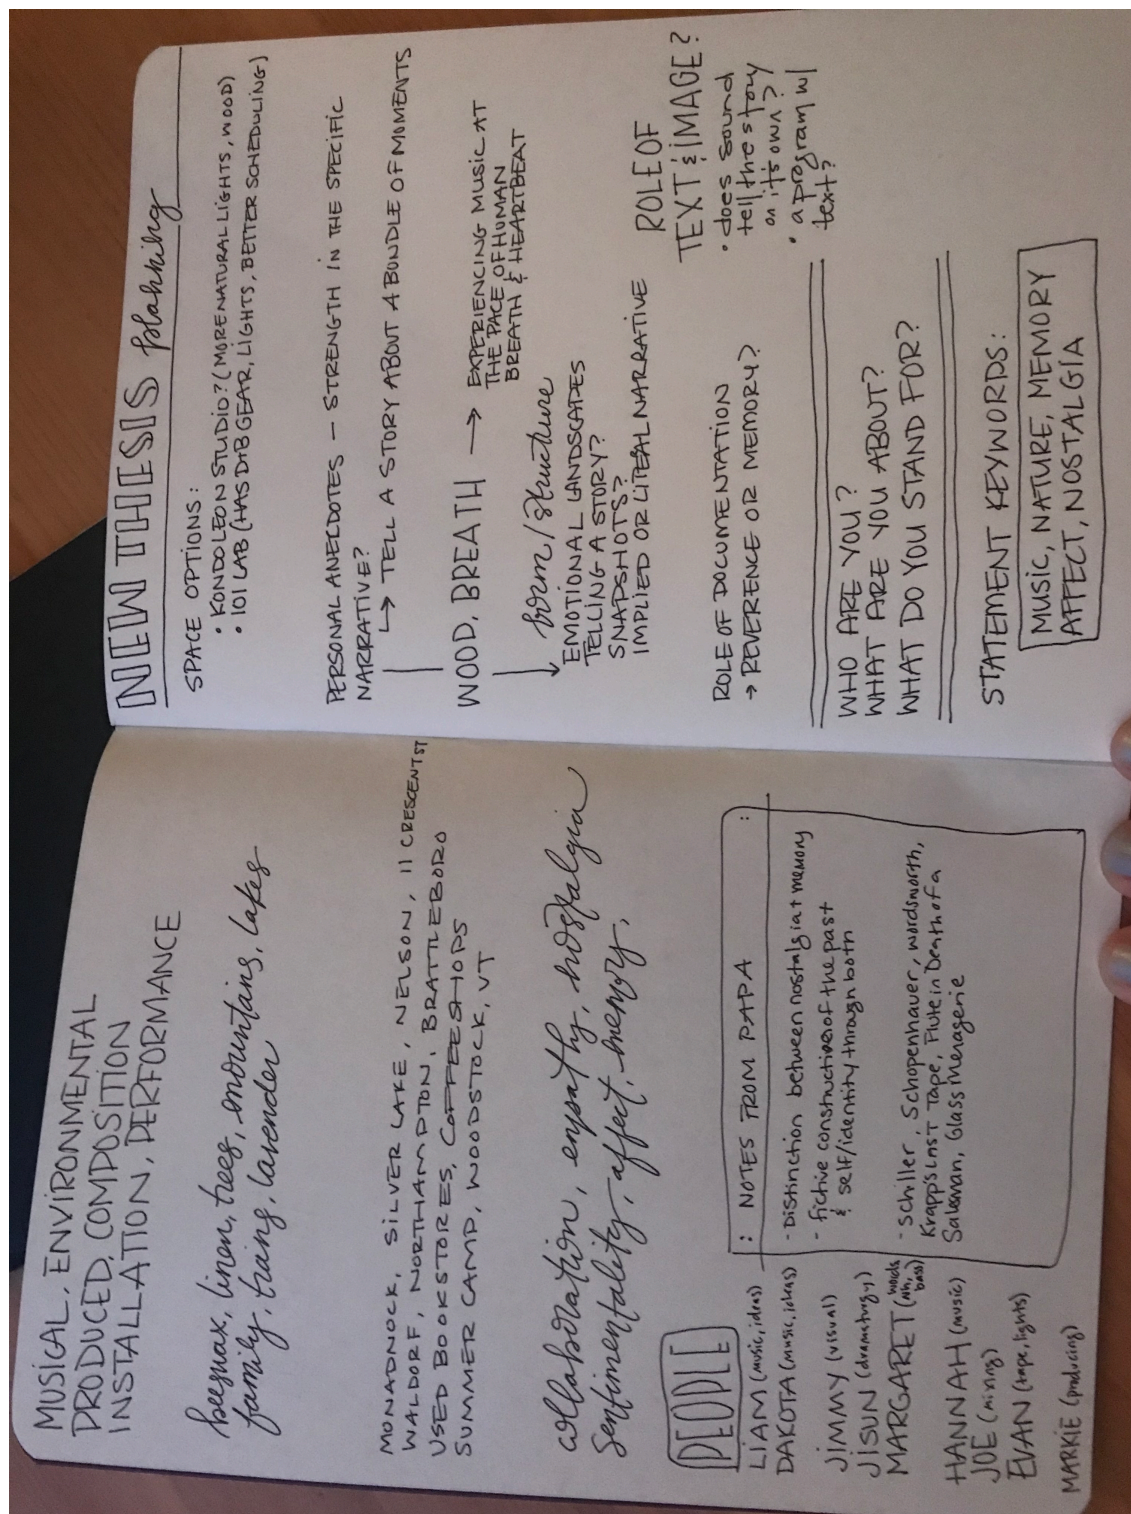 MUSICAL, ENVIRONMENTAL
PRODUCED, COMPOSITION
INSTALLATION, PERFORMANCE
beeswax, linen, trees, mountains, lakes
family, trains, lavender
MONADNOCK, SILVER LAKE, NELSON, 11 CRESCENT ST
WALDORF, NORTHAMPTON, BRATTLEBORO
USED BOOKSTORES, COFFEESHOPS
SUMMER CAMP, WOODSTOCK, VT
collaboration, empathy, nostalgia
Sentimentality, affect, memory,
PEOPLE
LIAM (music, ideas)
DAKOTA (music, ideas)
JIMMY (visual)
JISUN (dramaturgy)
MARGARET (words, bass)
HANNAH (music)
JOE (mixing)
EVAN (tape, lights)
MARKIE (producing)
: NOTES FROM PAPA :
- Distinction between nostalgia & memory
- fictive construction of the past
& self/identity through both
- Schiller, Schopenhauer, wordsworth,
Krapp's LAST Tape, Flute in Death of a
Salesman, Glass Menagerie
NEW THESIS planning
SPACE OPTIONS:
• KONDOLEON STUDIO? (MORE NATURAL LIGHTS, WOOD)
• 101 LAB (HAS D+B GEAR, LIGHTS, BETTER SCHEDULING)
PERSONAL ANECDOTES – STRENGTH IN THE SPECIFIC
NARRATIVE?
↳ TELL A STORY ABOUT A BUNDLE OF MOMENTS
WOOD, BREATH → EXPERIENCING MUSIC AT
THE PACE OF HUMAN
BREATH & HEARTBEAT
form/structure
EMOTIONAL LANDSCAPES
TELLING A STORY?
SNAPSHOTS?
IMPLIED OR LITERAL NARRATIVE
ROLE OF
TEXT & IMAGE?
• does sound
tell the story
on it's own?
• a program w/
text?
ROLE OF DOCUMENTATION
→ REVERENCE OR MEMORY?
WHO ARE YOU?
WHAT ARE YOU ABOUT?
WHAT DO YOU STAND FOR?
STATEMENT KEYWORDS:
MUSIC, NATURE, MEMORY
AFFECT, NOSTALGIA